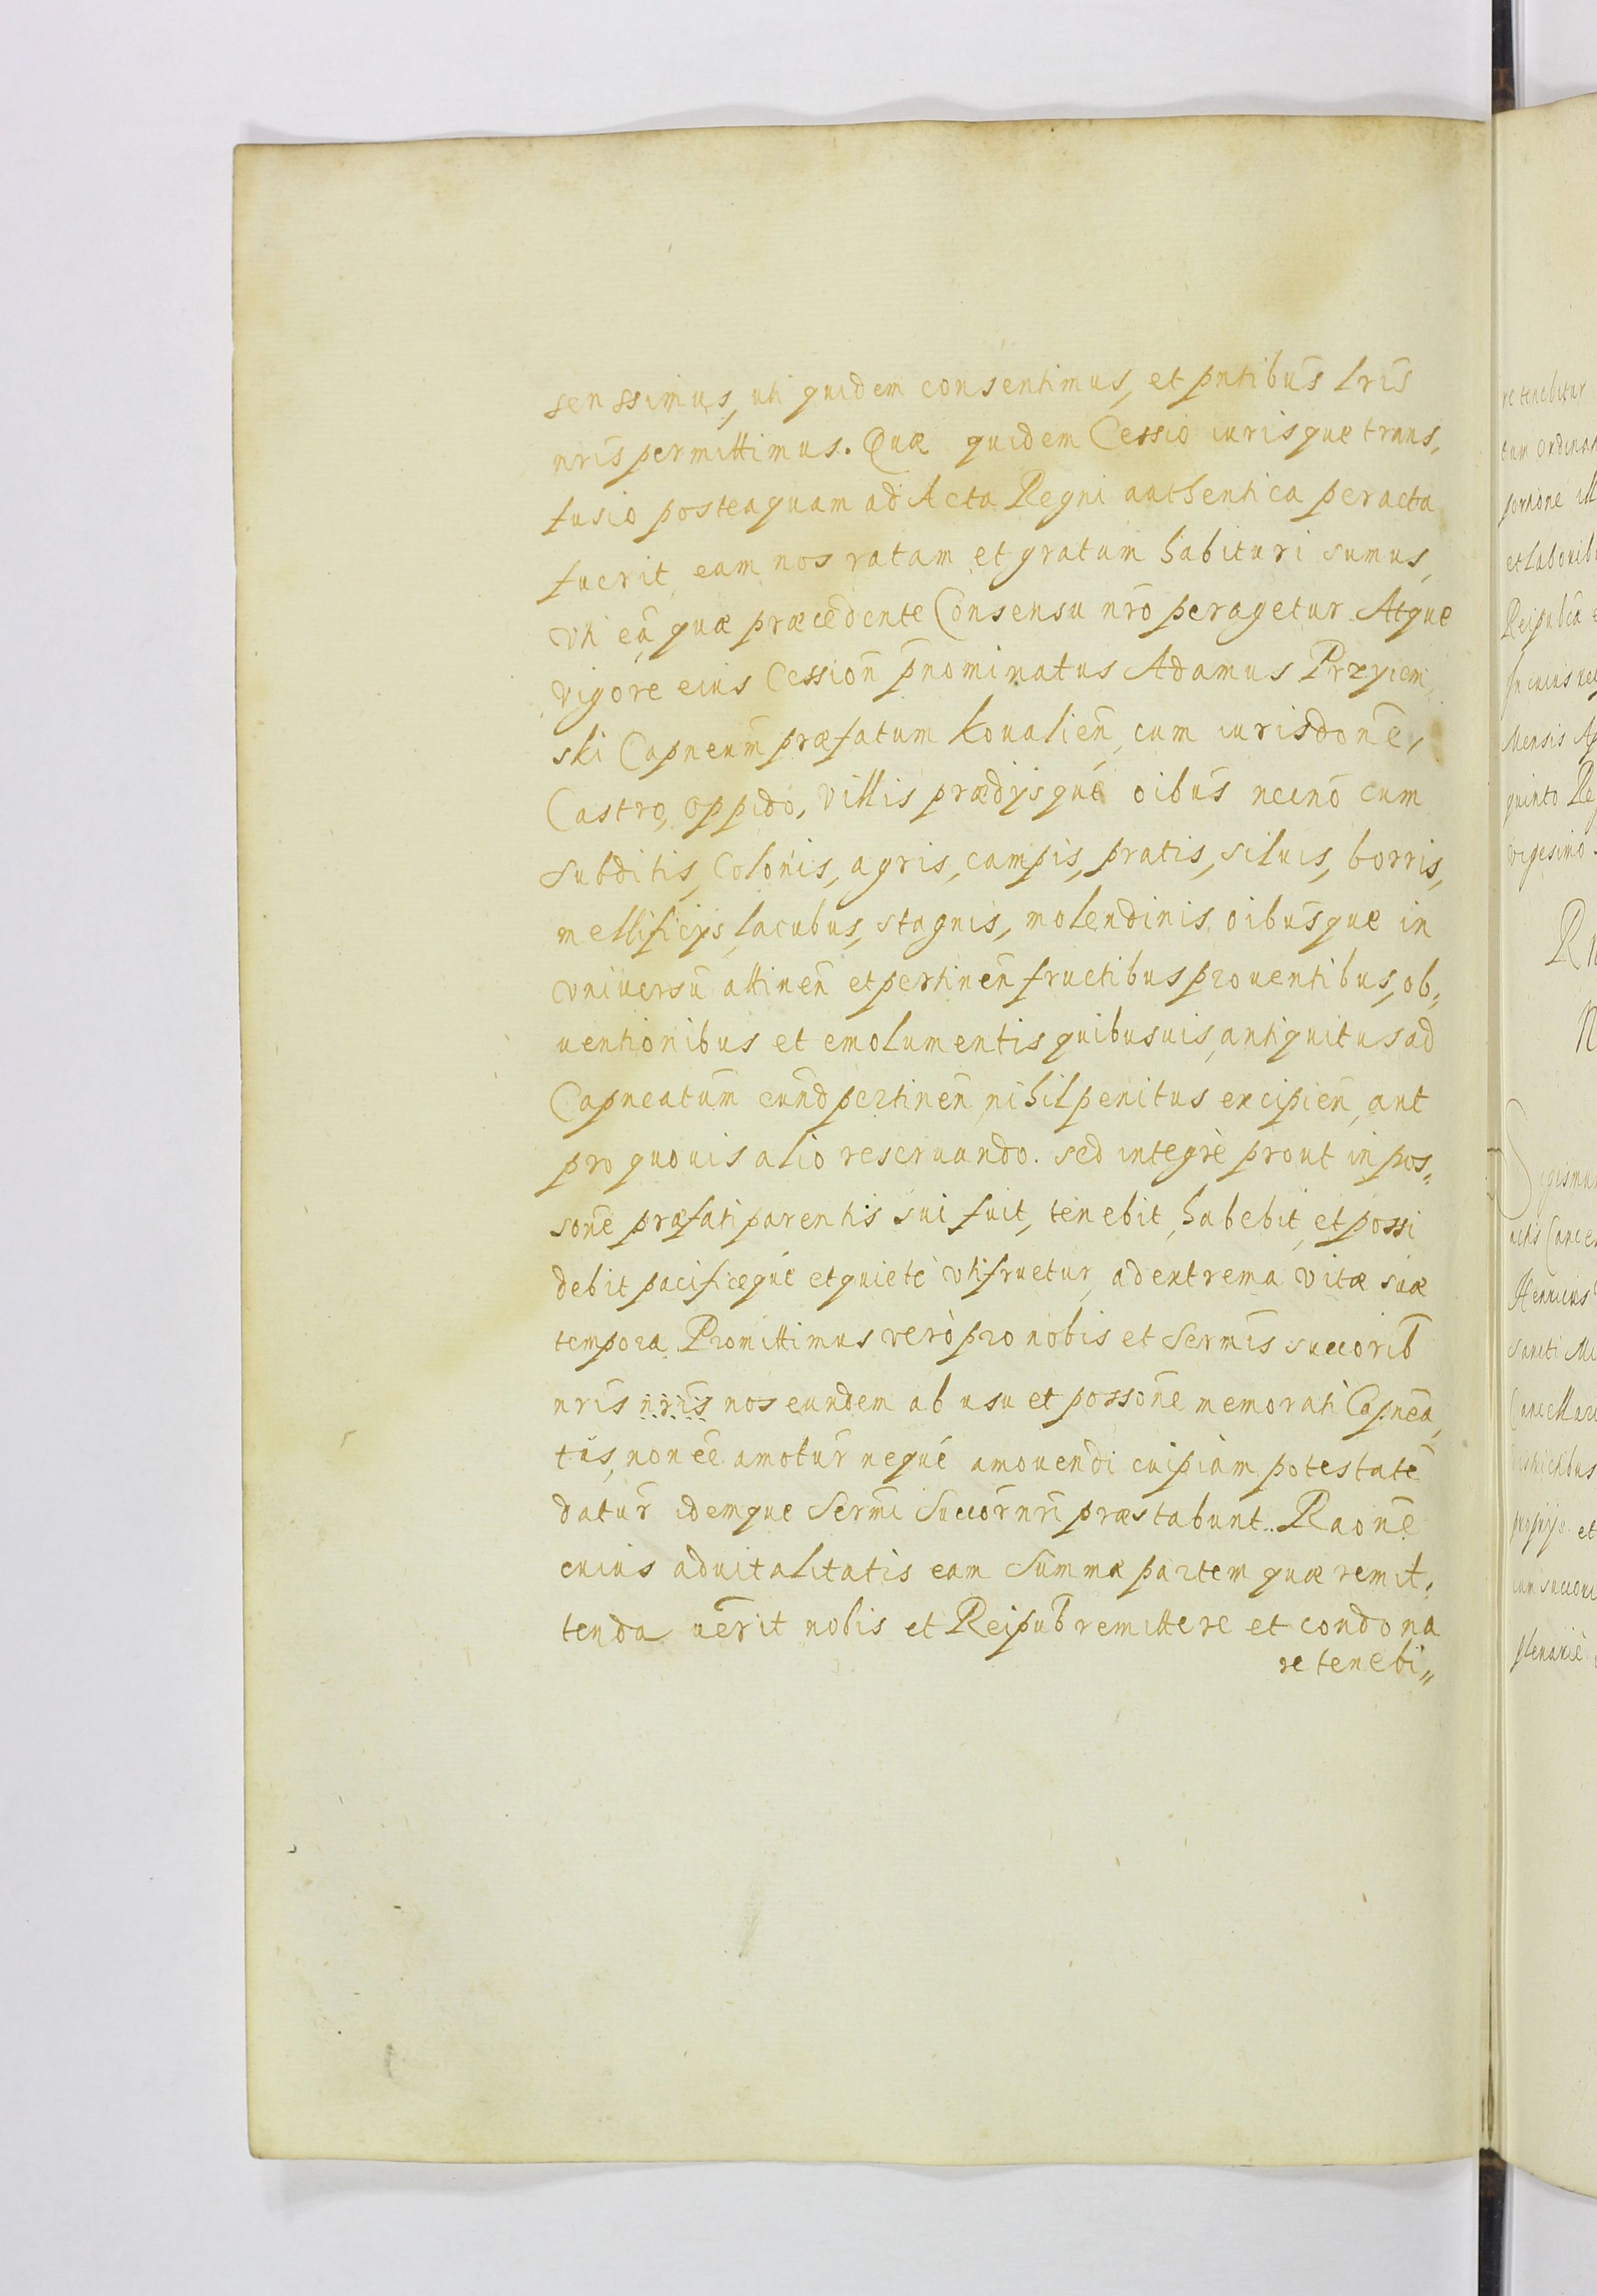 senssimus, uti quidem consentimus, et pntibus̄ lris̄
nris̄ permittimus. Quæ quidem Cessio iurisque trans,
fusio posteaquam ad Acta Regni authentica peracta
fuerit, eam nos ratam et gratam habituri sumus,
Vti eā, quæ præcedente Consensu nrō peragetur Atque
vigore eius Cession̄ p̄nominatus Adamus Przyiem,
ski Capneum̄ præfatum Koualien̄, cum iurisdonē,
Castro, oppido, Villis prædijsque oibus̄ necnō cum
Subditis, Colonis, agris, campis, pratis, siluis, borris,
mellificijs, lacubus, stagnis, molendinis oibus̄que in
vniuersū attinen̄ et pertinen̄ fructibus prouentibus, ob,
uentionibus et emolumentis quibusuis, antiquitus ad
Capneatum̄ eund̄ pertinen̄, nihil penitus excipien̄, aut
pro quouis alio reseruando. sed integrè prout in pos,
sonē præfati parentis sui fuit, tenebit, habebit, et possi
debit pacificequé et quietè vtifruetur, ad extrema vitæ suæ
tempora. Promittimus verò pro nobis et Sermis̄ succorib̄
nris̄ nris̄ nos eundem ab usu et possonē memorati Capnea̅,
tus, non eē amotur̄ nequé amouendi cuipiam potestatē
datur̄ idemque Sermī Succor̄ nrī præstabunt. Raonē
cuius aduitalitatis eam Summæ partem quæ remit,
tenda uērit nobis et Reipub̄ remittere et condona
re tenebi,,
re tenebitur
portione
et laboribus
Reipublicā
In cuius
Mensis
quinto
vigesimo
Henricus
Sancti
plenariè